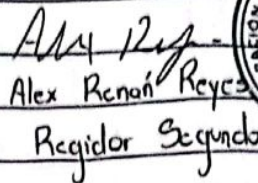 Alex Renán Reyes
Regidor Segundo